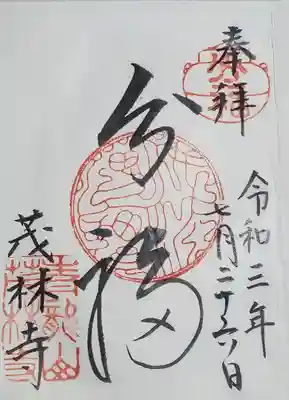 奉拝
令和三年
七月二十六日
分福
茂林寺